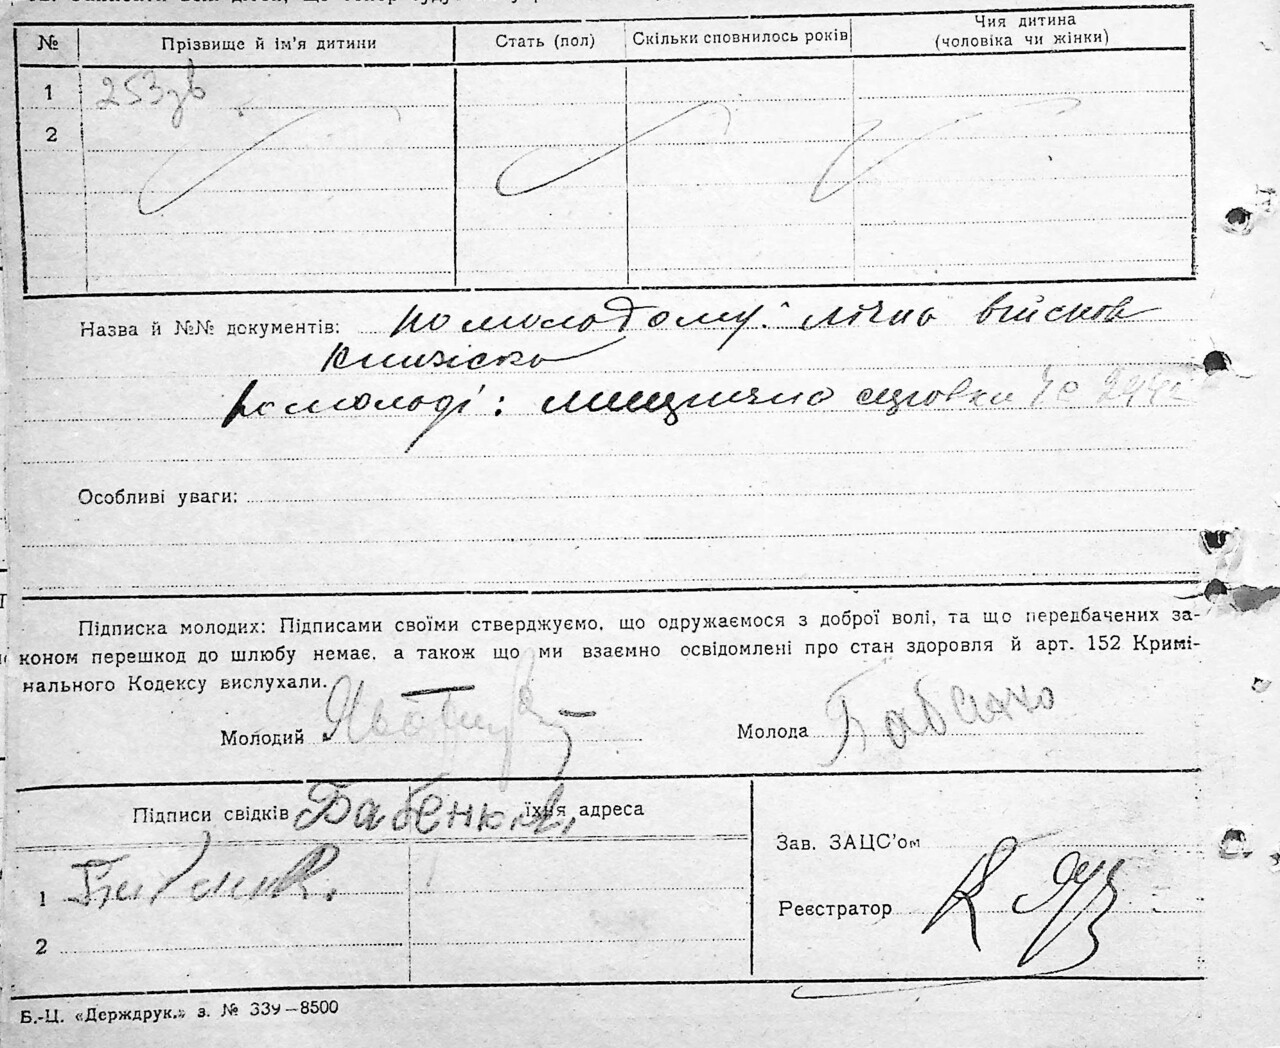 № Прізвище й ім'я дитини Стать (пол) Скільки сповнилось років Чия дитина (чоловіка чи жінки)
1 253
2
Назва й №№ документів: по молодому: лічна війскова
книжка
по молоді: 
Особливі уваги:
Підписка молодих: Підписами своїми стверджуємо, що одружаємося з доброї волі, та що передбачених за-
коном перешкод до шлюбу немає, а також що ми взаємно освідомлені про стан здоровля й арт. 152 Кримі-
нального Кодексу вислухали.
Молодий Молода
Підписи свідків їхня адреса
Зав. ЗАЦС'ом
1
Реєстратор
2
Б.-Ц. «Держдрук.» з. № 339—8500